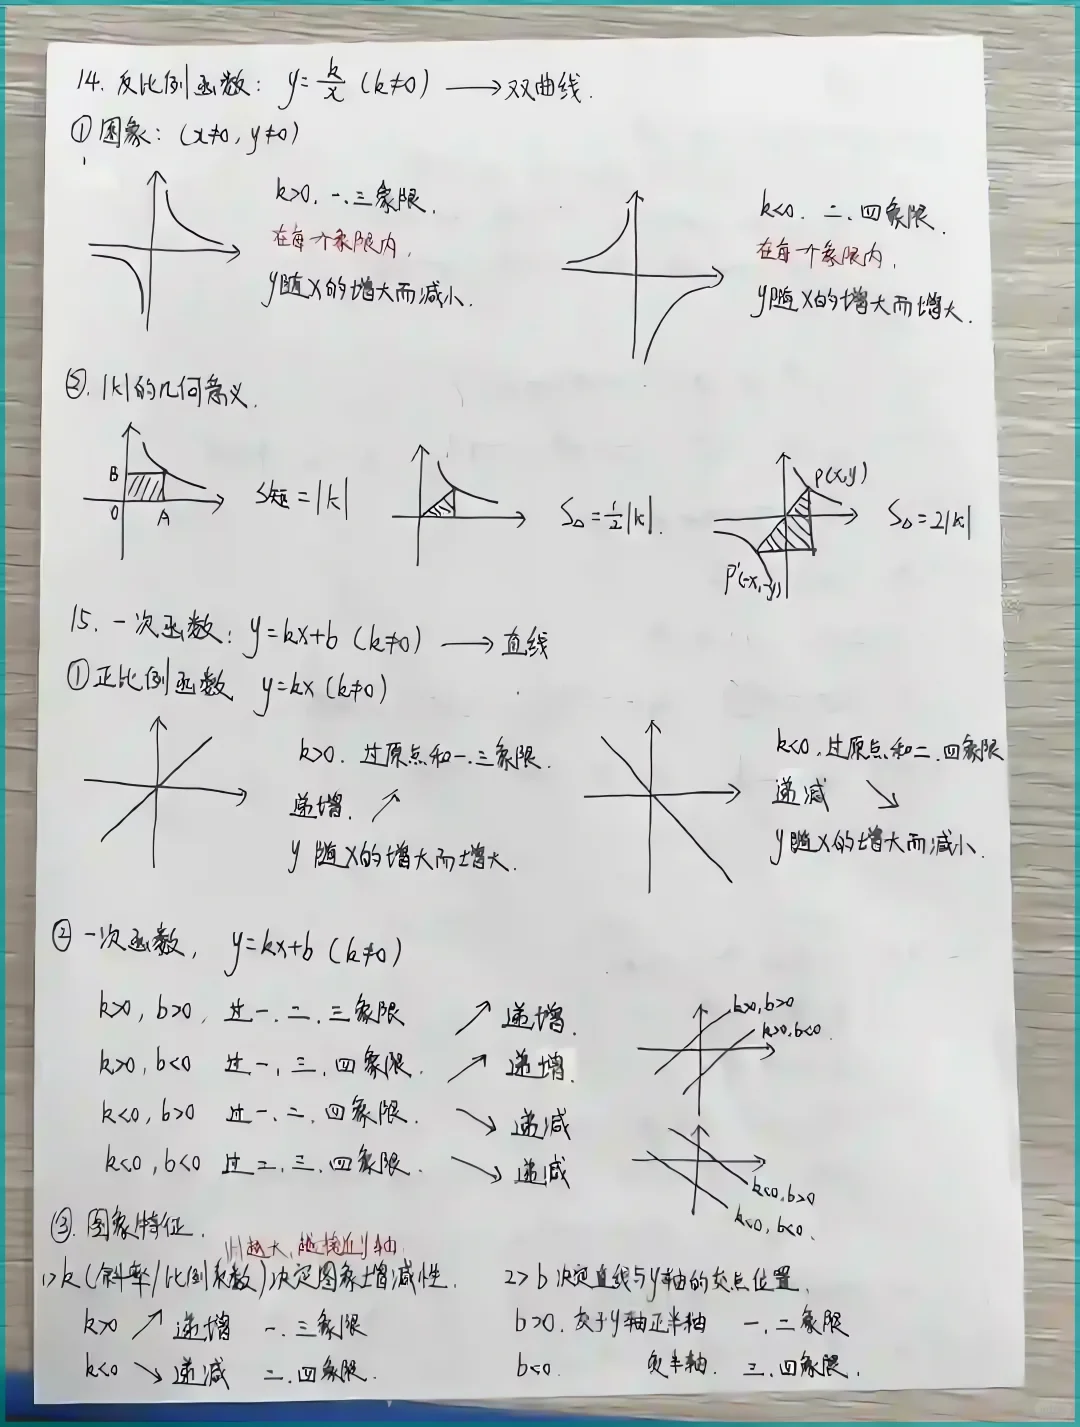 14. 反比例函数: y=k/x (k≠0) ⟶ 双曲线.
① 图象: (x≠0, y≠0)
k>0. 一.三象限.
在每一个象限内,
y随x的增大而减小.
k<0. 二.四象限.
在每一个象限内,
y随x的增大而增大.
②. |k|的几何意义.
B
O
A
S矩=|k|
S△=½|k|.
P(x,y)
P'(-x,-y)
S△=2|k|
15. 一次函数: y=kx+b (k≠0) ⟶ 直线
① 正比例函数 y=kx (k≠0)
k>0. 过原点和一.三象限.
递增. ↗
y随x的增大而增大.
k<0. 过原点和二.四象限
递减 ↘
y随x的增大而减小.
② 一次函数, y=kx+b (k≠0)
k>0, b>0, 过一.二.三象限 ↗ 递增.
k>0, b<0 过一.三.四象限. ↗ 递增.
k<0, b>0 过一.二.四象限. ↘ 递减
k<0, b<0 过二.三.四象限. ↘ 递减
k>0, b>0
k>0, b<0.
k<0, b>0
k<0, b<0.
③. 图象特征.
|k|越大, 越接近y轴
1> k (斜率/比例系数) 决定图象增减性.
k>0 ↗ 递增 一.三象限
k<0 ↘ 递减 二.四象限.
2> b 决定直线与y轴的交点位置.
b>0. 交于y轴正半轴 一.二象限
b<0. 负半轴. 三.四象限.